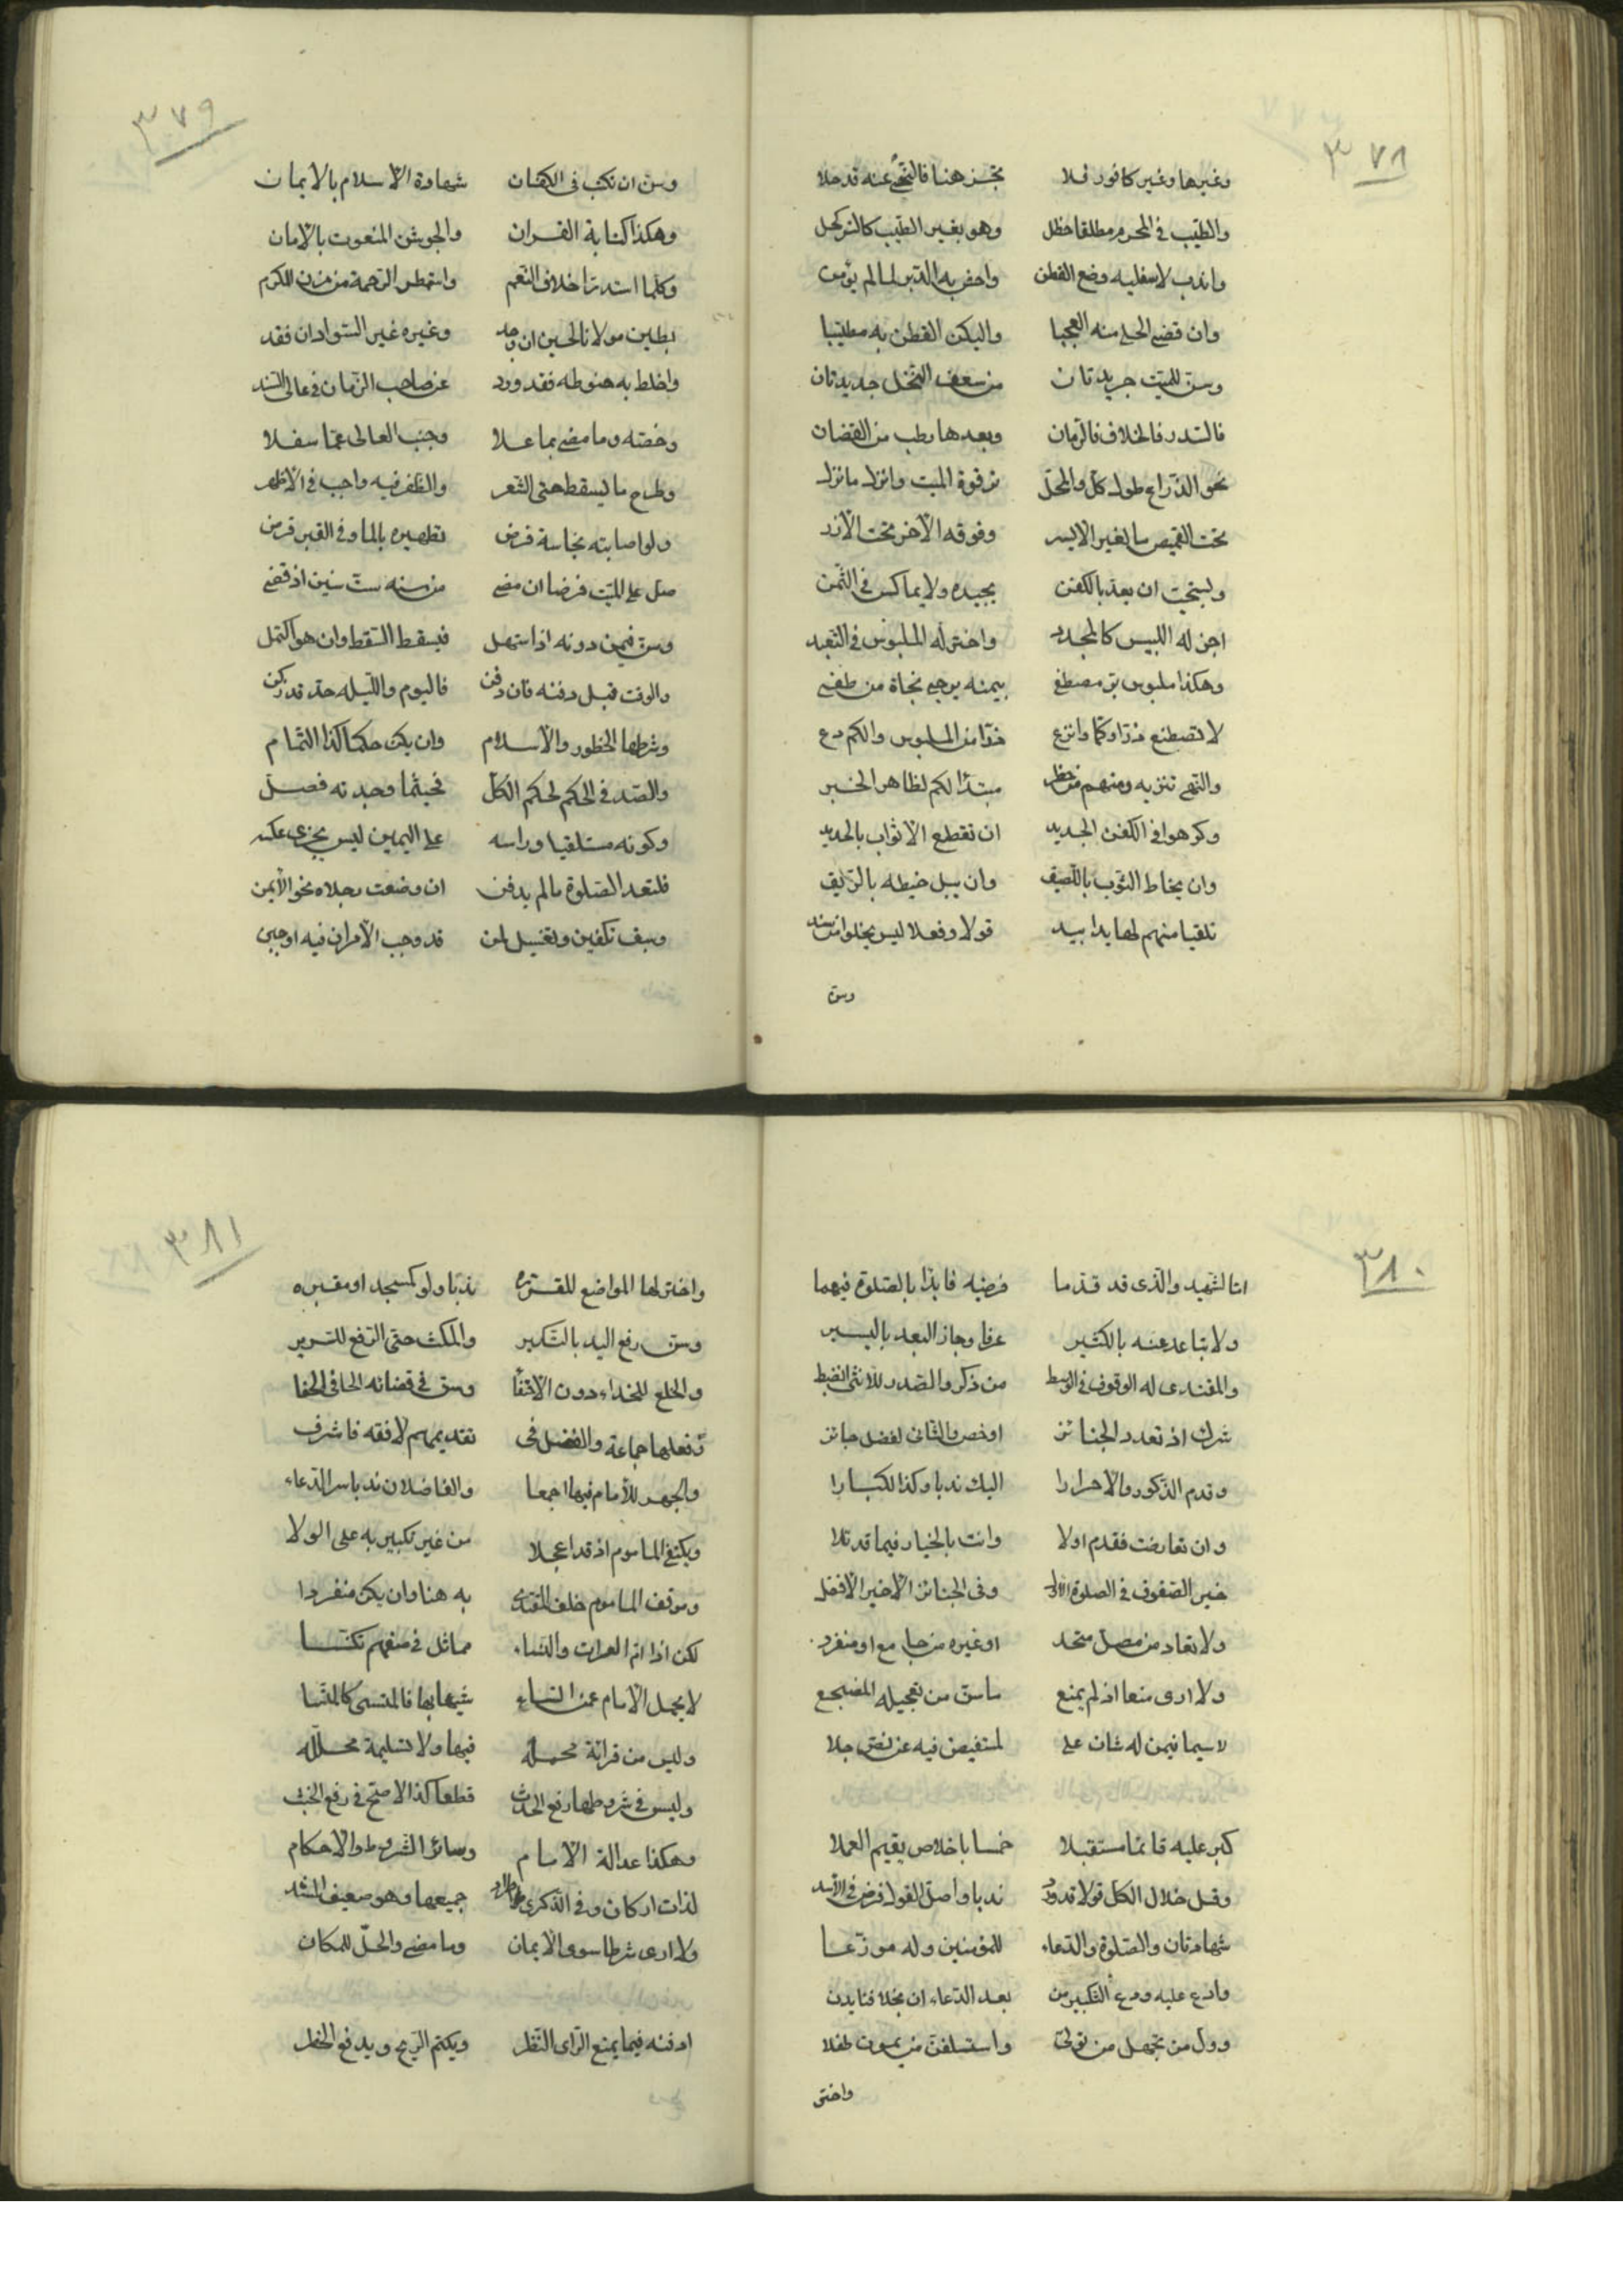 ٣٧٨
وغيرها وغير كافور فلا تجز هنا فالنهي عنه قد جلا
والطيب في المحرم مطلقا حظل وهو بغير الطيب كالتر كحل
واندب لاسفليه وضع القطن واحش به الدبر لما لم يؤمن
وان قضى الحي منه العجبا واليكن القطن به مطيبا
وسن للميت جريدتان من سعف النخل جديدتان
فالسدر فالخلاف فالرمان وبعدها رطب من القضبان
نحو الذراع طول كل والمحل ترقوة الميت وانزل ما نزل
تحت القميص سا لغير الايسر وفوقه الآخر تحت الأزر
ويستحب ان يعد بالكفن بجيده ولا يماكس في الثمن
اجز له اللبيس كالمجدد واختر له الملبوس في التعبد
وهكذا ملبوس بر مصطفى بيمنه يرجى نجاة من طفى
لا تصطنع زرا وكما وانزع زرا من الملبوس والكم دع
والنهي تنزيه ومنهم من حظر مبتدأ لكم لظاهر الخبر
وكرهوا في الكفن الجديد ان تقطع الأثواب بالحديد
وان يخاط الثوب باللصيق وان يبل خيطه بالريق
تلقيا منهم لها يدا بيد قولا وفعلا ليس يخلوا من سند
وسن
٣٧٩
وسن ان تكتب في الكفان شهادة الاسلام بالايمان
وهكذا كتابة القران والجوشن المنعوت بالأمان
وكلما استدر اخلاف النعم واستمطر الرحمة من مزن الكرم
بطين مولانا الحسين ان وجد وغيره غير السواد ان فقد
واخلط به حنوطه فقد ورد عن صاحب الزمان في عالي السند
وخصه وما مضى بما علا وجنب العالى عما سفلا
وطرح ما يسقط حتى الشعر والظفر فيه واجب في الاظهر
ولو اصابته نجاسة فرض تطهيره بالماء وفي القبر قرض
صل على الميت فرضا ان مضى من سنه ست سنين اذ قضى
وسن فيمن دونه اذا استهل فيسقط السقط وان هو اكتمل
والوقت قبل دفنه فان دفن فاليوم والليله حد قد ركن
وشرطها الحضور والاسلام وان يكن حكما كذا التمام
والصدر في الحكم لحكم الكل فحيثما وجدته فصل
وكونه مستلقيا وراسه على اليمين ليس يجزى عكسه
فلتعد الصلوة ما لم يدفن ان وضعت رجلاه نحو الأيمن
وسبق تكفين وتغسيل لمن قد وجب الأمران فيه اوجبن
٣٨٠
اما الشهيد والذى قد قدما فرضيه فابدا بالصلوة فيهما
ولا تباعد عنه بالكثير عرفا وجاز البعد باليسير
والمقتدى له الوقوف في الوسط من ذكر والصدر للانثى انضبط
شرك اذ تعدد الجنائز او خص والثانى لفضل حائز
وقدم الذكور والأحرارا اليك ندبا وكذا الكبارا
وان تعارضت فقدم اولا وانت بالخيار فيما قد تلا
خير الصفوف في الصلوة الأول وفى الجنائز الأخير الأفضل
ولا تعاد من مصل متحد او غيره من جامع او منفرد
ولا ارى منعا اذ لم يمنع ما سن من تعجيله المضجع
لا سيما فيمن له شان على لمستفيض فيه عن نص جلا
كبر عليه قائما مستقبلا خمسا باخلاص يقيم العملا
وقل خلال الكل قولا قد ورد ندبا واصل القول فرض في الأسد
شهادتان والصلوة والدعاء للمؤمنين وله موزعا
وادع عليه ودع التكبير من بعد الدعاء ان
وول من تجهل من تولى واستسلفن من يموت طفلا
واختر
٣٨١
واختر لها المواضع المقرره ندبا ولو كمسجد او مقبره
وسن رفع اليد بالتكبير والمكث حتى الرفع للسرير
والخلع للحذاء دون الأخفا وسن في قضائه الحافى الحفا
وفعلها جماعة والفضل فى تقديمهم لافقه فاشرف
والجهر للأمام فيها اجمعا والفاضلان ندبا سر الدعاء
ويكتفي الماموم اذ قد اعجلا من غير تكبير به على الولا
وموقف الماموم خلف المقتدى به هنا وان يكن منفردا
لكن اذا ام العراة والنساء مماثل في صفهم
لا يحمل الأمام عمن
وليس من قرائة محصله فيها ولا تسليمة محلله
وليس في شروطها رفع الحدث قطعا كذا الاصح في رفع الخبث
وهكذا عدالة الأمام وسائر الشروط والأحكام
لذات اركان وفى الذكرى جميعها وهو ضعيف السند
ولا ارى شرطا سوى الايمان وما مضى والحل للمكان
ادفنه فيما يمنع الراى النظر ويكتم الريح ويدفع الخطر